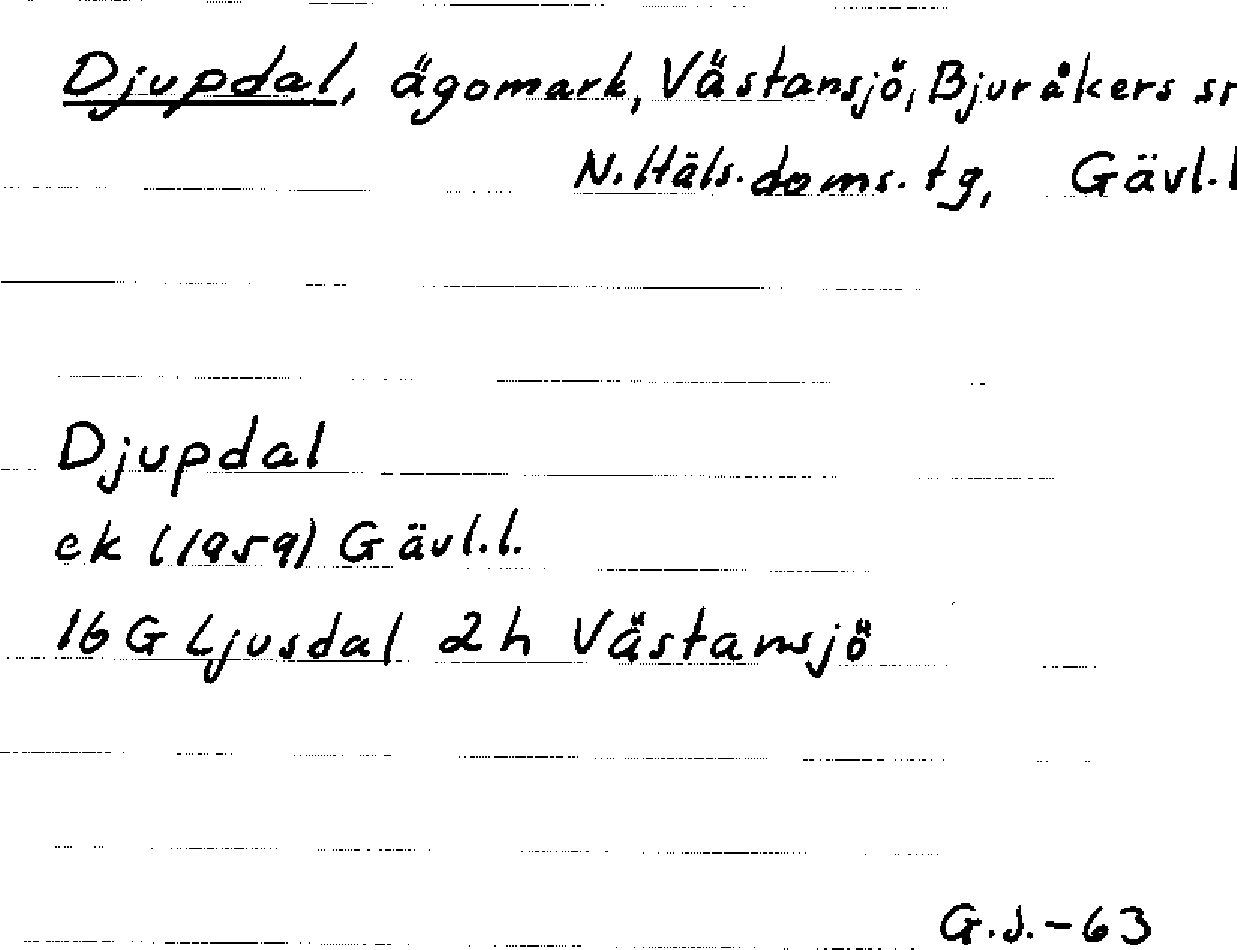 Djupdal, ägomark, Västansjö, Bjuråkers sn
N. Häls. doms. tg, Gävl. l
Djupdal
ek (1959) Gävl. l.
16 G Ljusdal 2h Västansjö
G. J. - 63